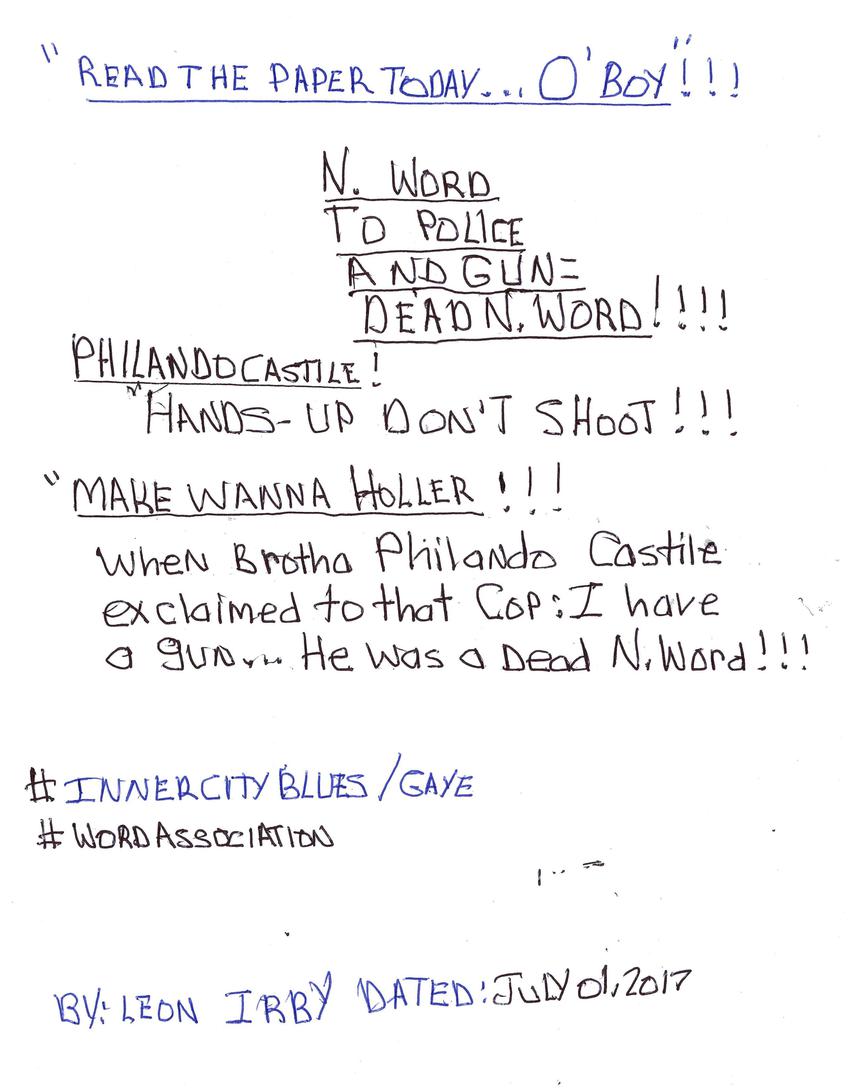 "READ THE PAPER TODAY... O'BOY"!!!
N. WORD
TO POLICE
AND GUN=
DEAD N. WORD!!!!
PHILANDO CASTILE!
"HANDS-UP DON'T SHOOT!!!
"MAKE WANNA HOLLER!!!
When Brotha Philando Castile
exclaimed to that Cop: I have
a gun.... He was a Dead N. Word!!!
#INNERCITY BLUES/GAYE
#WORD ASSOCIATION
BY: LEON IRBY DATED: JULY 01, 2017